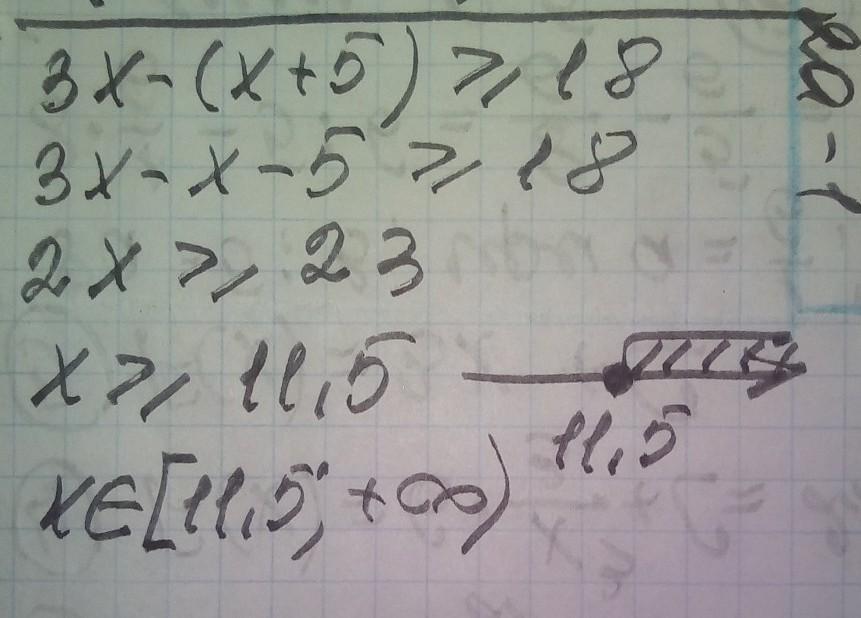 3x-(x+5)⩾18
3x-x-5⩾18
2x⩾23
x⩾11,5
11,5
x∈[11,5;+∞)